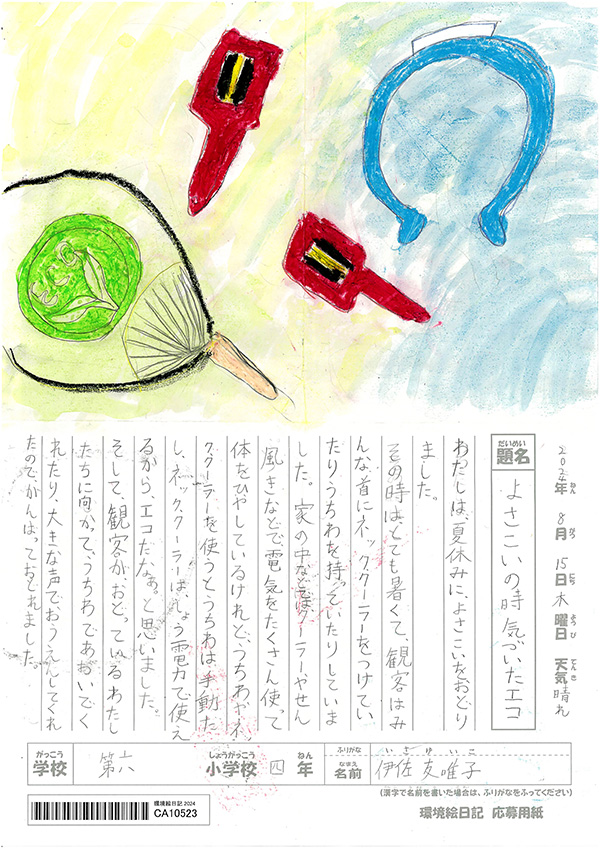 ECO
2024年ねん 8月がつ 15日にち 木曜日ようび 天気てんき 晴れ
だいめい
題名 よさこいの時 気づいたエコ
わたしは、夏休みに、よさこいをおどり
ました。
その時は、とても暑くて、観客はみ
んな首にネッククーラーをつけてい
たりうちわを持っていたりしていま
した。家の中などではクーラーやせん
風きなどで電気をたくさん使って
体をひやしているけれど、うちわやネッ
ククーラーを使うとうちわは手動だ
し、ネッククーラーは、しょう電力で使え
るから、エコだなぁ。と思いました。
そして、観客がおどっているわたし
たちに向かって、うちわであおいでく
れたり、大きな声でおうえんしてくれ
たのでがんばっておどれました。
がっこう しょうがっこう ねん
学校 第六 小学校 四 年
ふりがな いさ ゆいこ
なまえ
名前 伊佐 友唯子
(漢字で名前を書いた場合は、ふりがなをふってください)
環境絵日記 2024
CA10523
環境絵日記 応募用紙